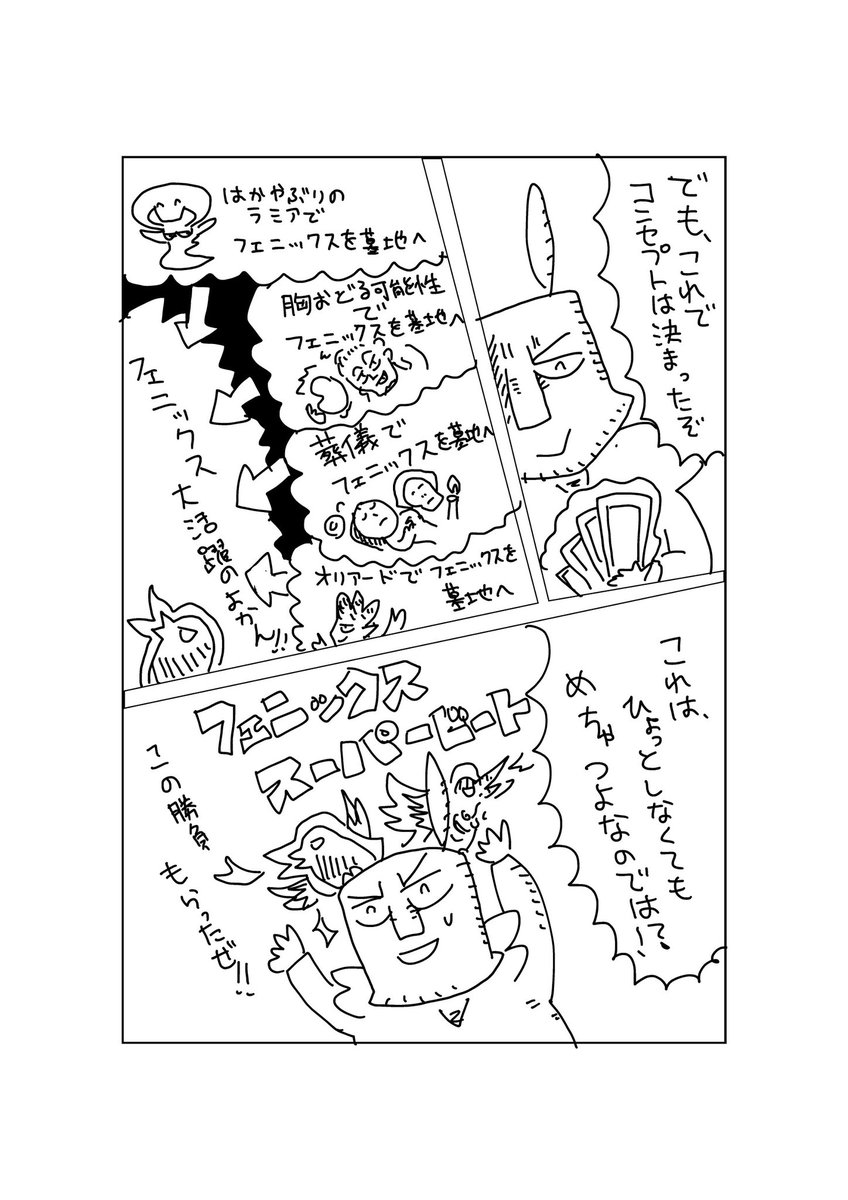 でも、これで
コンセプトは決まったぞ
はかやぶりの
ラミアで
フェニックスを墓地へ
胸おどる可能性
で
フェニックスを墓地へ
葬儀で
フェニックスを墓地へ
オリアードでフェニックスを
墓地へ
フェニックス大活躍のよかん!!
これは、
ひょっとしなくても
めちゃつよなのでは!?
フェニックス
スーパービート
この勝負
もらったぜ!!